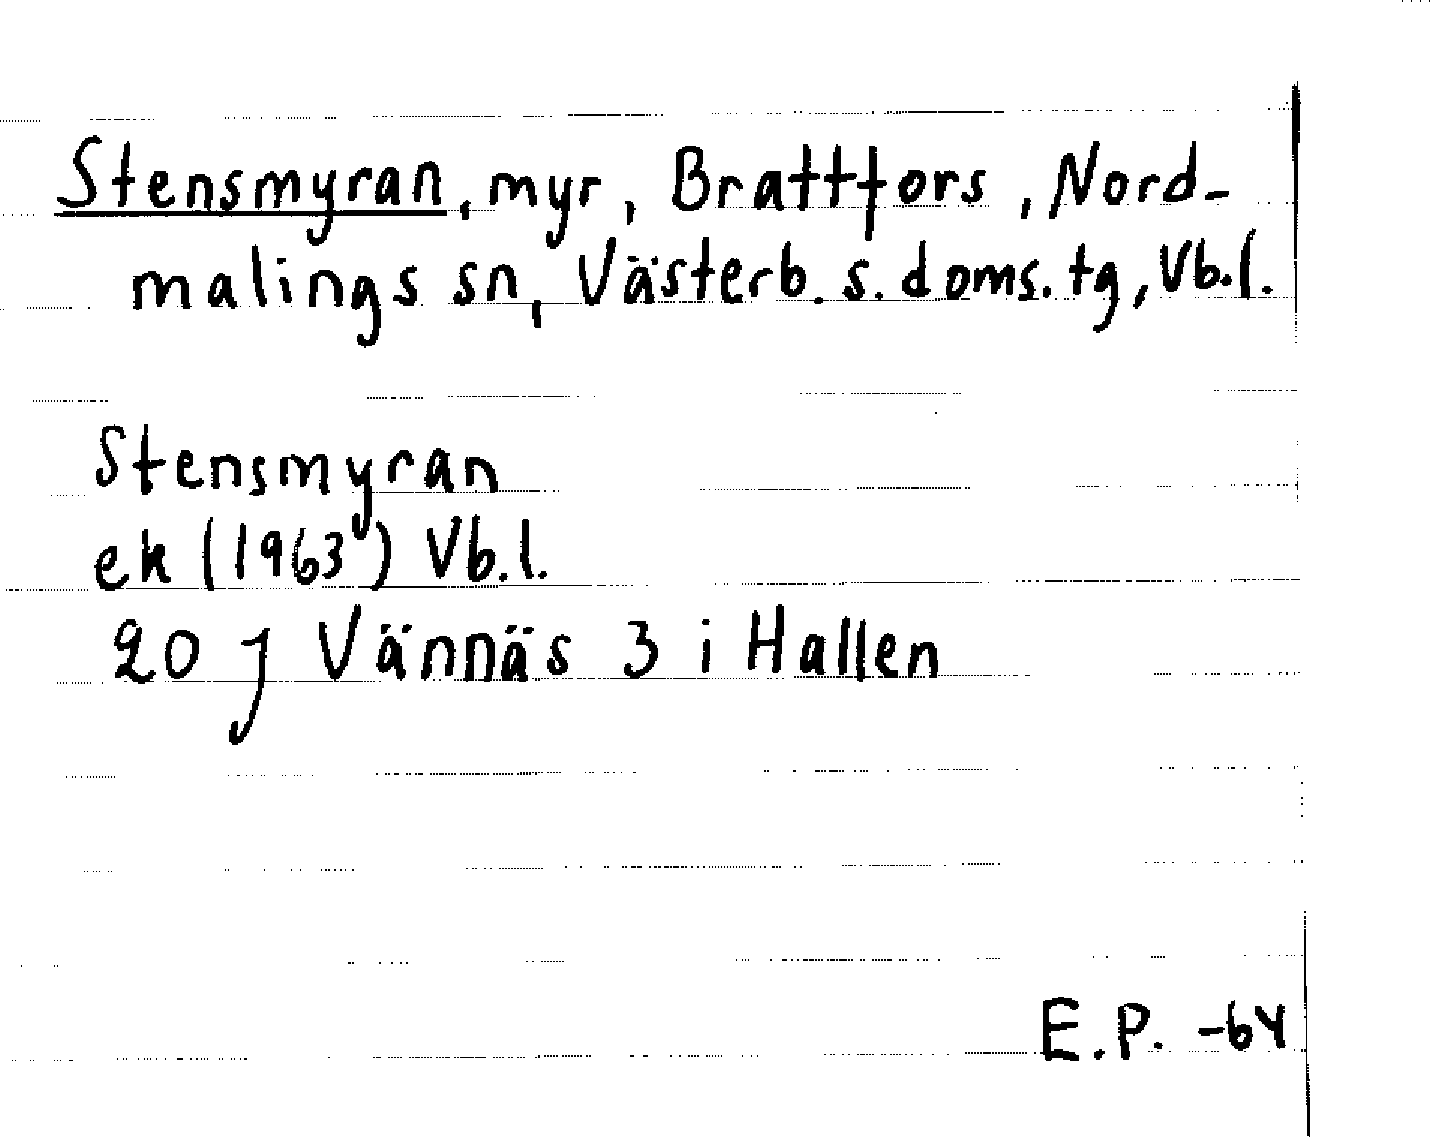 Stensmyran, myr, Brattfors, Nord-
malings sn, Västerb. s. doms. tg, Vb.l.
Stensmyran
ek (1963) Vb.l.
20 J Vännäs 3 i Hallen
E.P. -64